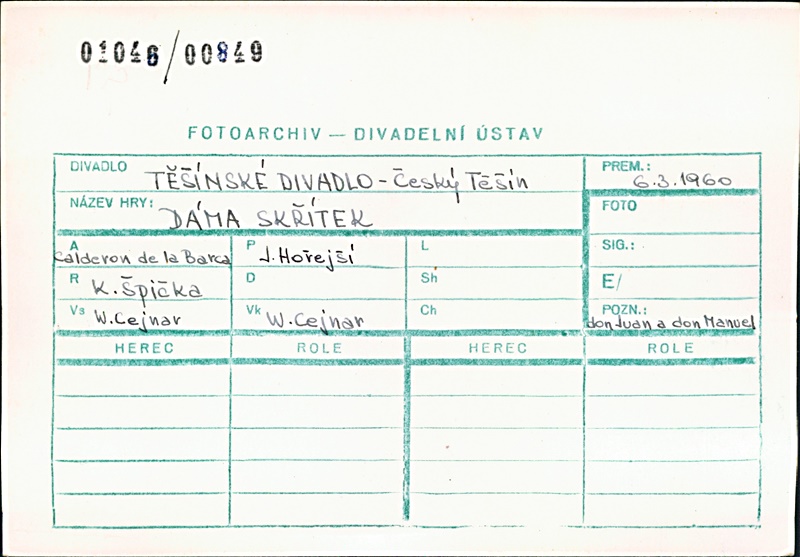 01046/00849
FOTOARCHIV — DIVADELNÍ ÚSTAV
DIVADLO TĚŠÍNSKÉ DIVADLO - Český Těšín
PREM.: 6.3.1960
NÁZEV HRY: DÁMA SKŘÍTEK
FOTO
A Calderon de la Barca
P J. Hořejší
L
SIG.:
R K. Špička
D
Sh
E/
Vs W. Cejnar
Vk W. Cejnar
Ch
POZN.: don Juan a don Manuel
HEREC ROLE HEREC ROLE